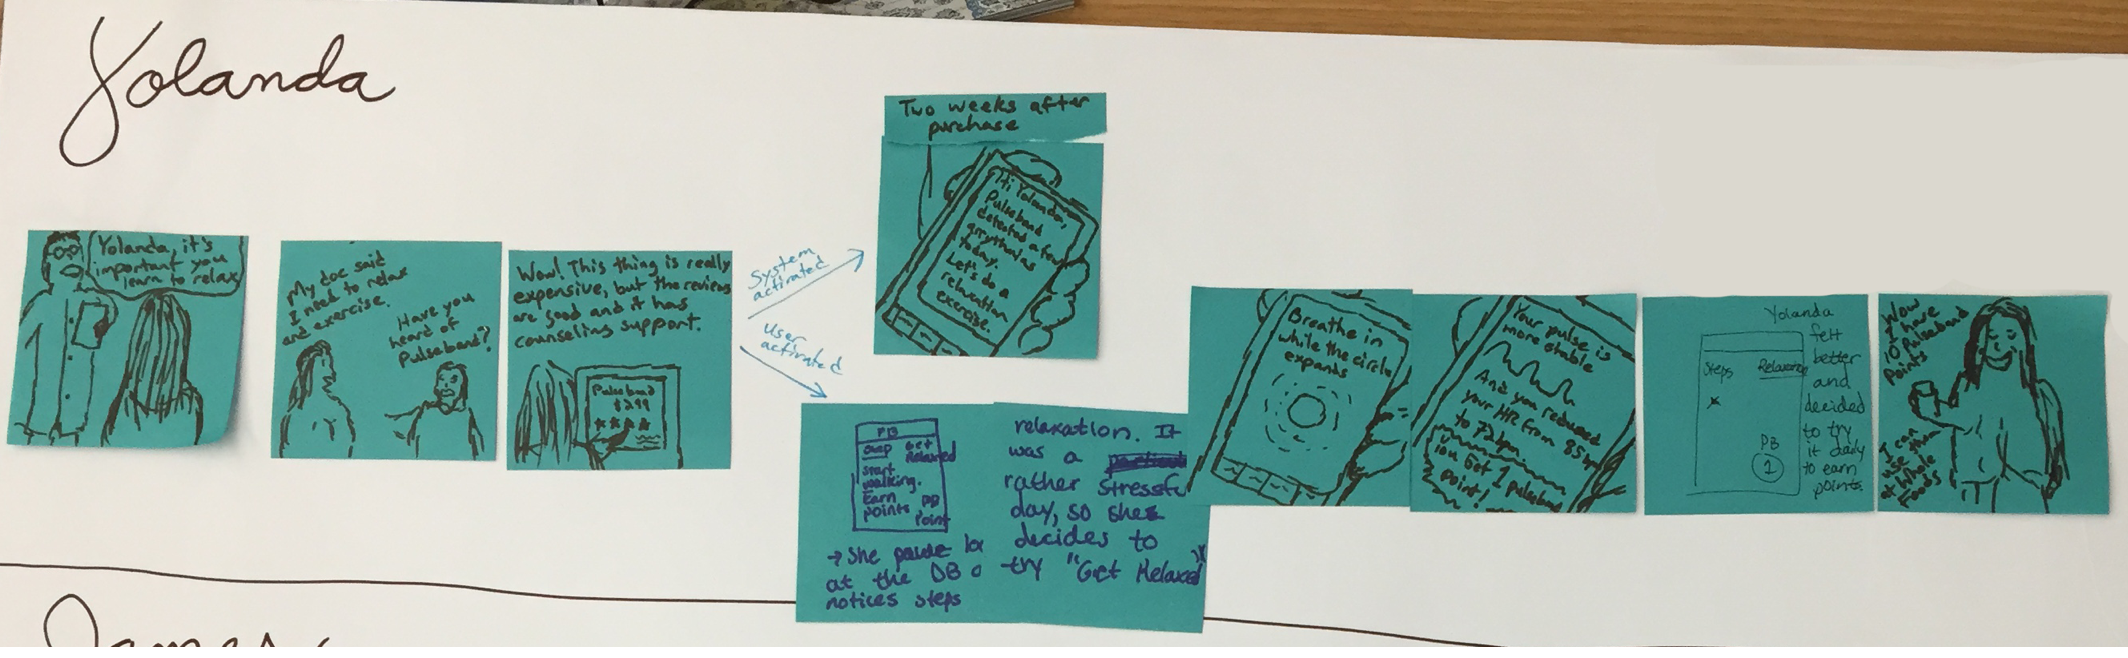 Yolanda
Yolanda, it's
important you
learn to relax
My doc said
I need to relax
and exercise.
Have you
heard of
Pulseband?
Wow! This thing is really
expensive, but the reviews
are good and it has
counseling support.
Pulseband
$299
System
activated
User
activated
Two weeks after
purchase
Hi Yolanda,
Pulseband
detected a few
arrythmias
today.
Let's do a
relaxation
exercise.
PB
Get
Relaxed
start
walking.
Earn
points
PB
Point
→ She pause
at the DB
notices steps
relaxation. It
was a
rather stressful
day, so she
decides to
try "Get Relaxed"
Breathe in
while the circle
expands
Your pulse is
more stable
And you reduced
your HR from 85
to 72bpm.
You Got 1 pulseband
point!
Yolanda
felt
better
and
decided
to try
it daily
to earn
points.
Steps
Relaxence
PB
1
Wow
I have
10 Pulseband
Points
I can
use them
at Whole
Foods
James